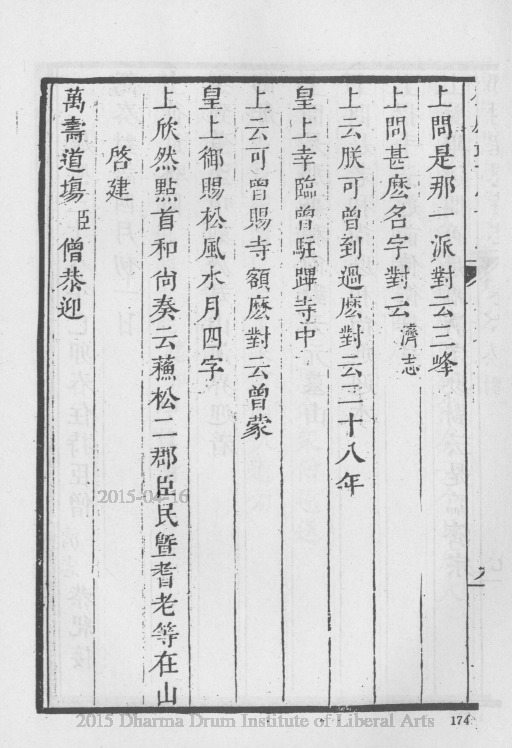 上問是那一派對云三峰
上問甚麽名字對云濟志
上云朕可曾到過麽對云三十八年
皇上幸臨曾駐蹕寺中
上云可曾賜寺額麽對云曾蒙
皇上御賜松風水月四字
上欣然點首和尙奏云蘓松二郡臣民曁耆老等在山
啓建
萬壽道塲臣僧恭迎
2015-04-16
2015 Dharma Drum Institute of Liberal Arts
174